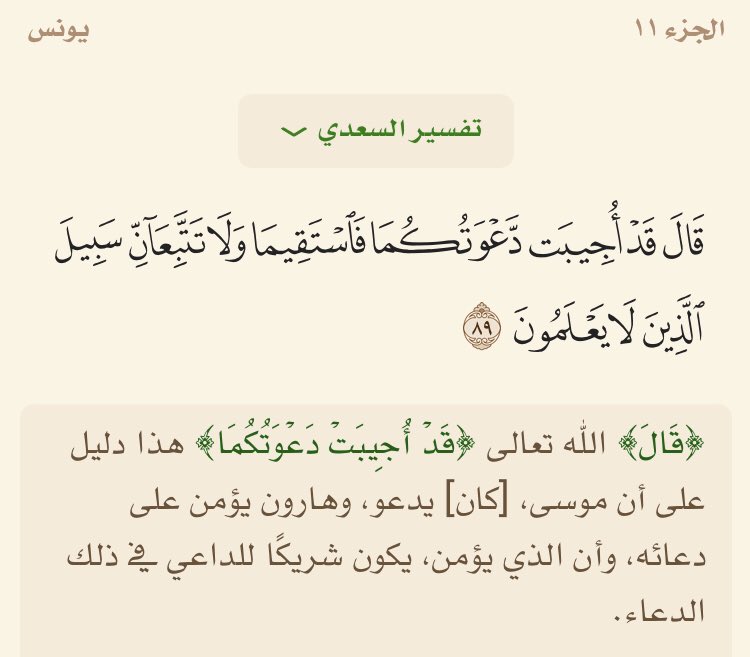 الجزء ١١
يونس
تفسير السعدي
قَالَ قَدْ أُجِيبَت دَّعْوَتُكُمَا فَٱسْتَقِيمَا وَلَا تَتَّبِعَآنِّ سَبِيلَ
ٱلَّذِينَ لَا يَعْلَمُونَ ٨٩
﴿قَالَ﴾ الله تعالى ﴿قَدْ أُجِيبَتْ دَعْوَتُكُمَا﴾ هذا دليل
على أن موسى، [كان] يدعو، وهارون يؤمن على
دعائه، وأن الذي يؤمن، يكون شريكًا للداعي في ذلك
الدعاء.